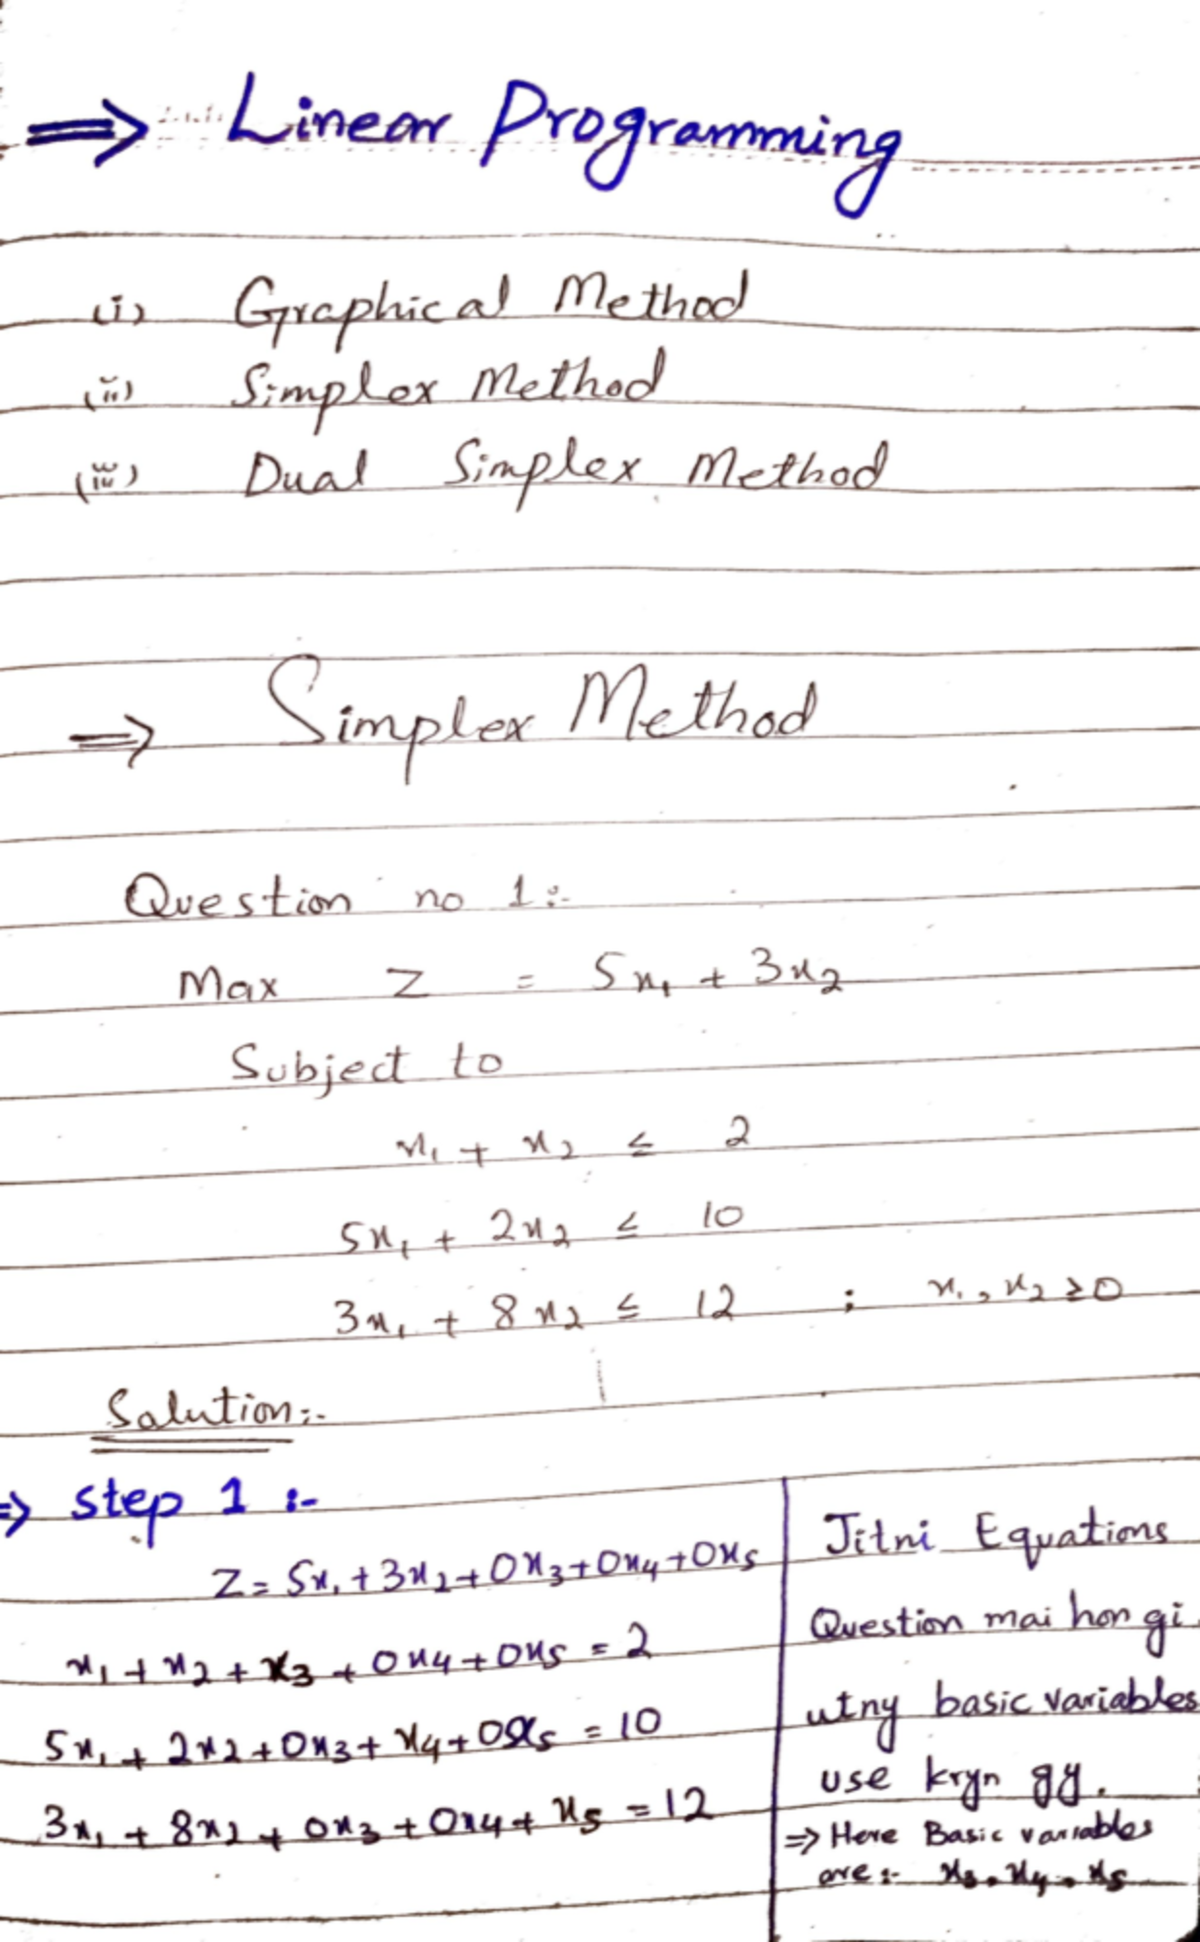 ⇒ Linear Programming
(i) Graphical Method
(ii) Simplex Method
(iii) Dual Simplex Method
⇒ Simplex Method
Question no 1:-
Max Z = 5x₁ + 3x₂
Subject to
x₁ + x₂ ≤ 2
5x₁ + 2x₂ ≤ 10
3x₁ + 8x₂ ≤ 12 ; x₁, x₂ ≥ 0
Solution:-
⇒ step 1 :-
Z = 5x₁ + 3x₂ + 0x₃ + 0x₄ + 0x₅
x₁ + x₂ + x₃ + 0x₄ + 0x₅ = 2
5x₁ + 2x₂ + 0x₃ + x₄ + 0x₅ = 10
3x₁ + 8x₂ + 0x₃ + 0x₄ + x₅ = 12
Jitni Equations
Question mai hon gi
utny basic variables
use kryn gy.
⇒ Here Basic variables
are :- x₃, x₄, x₅